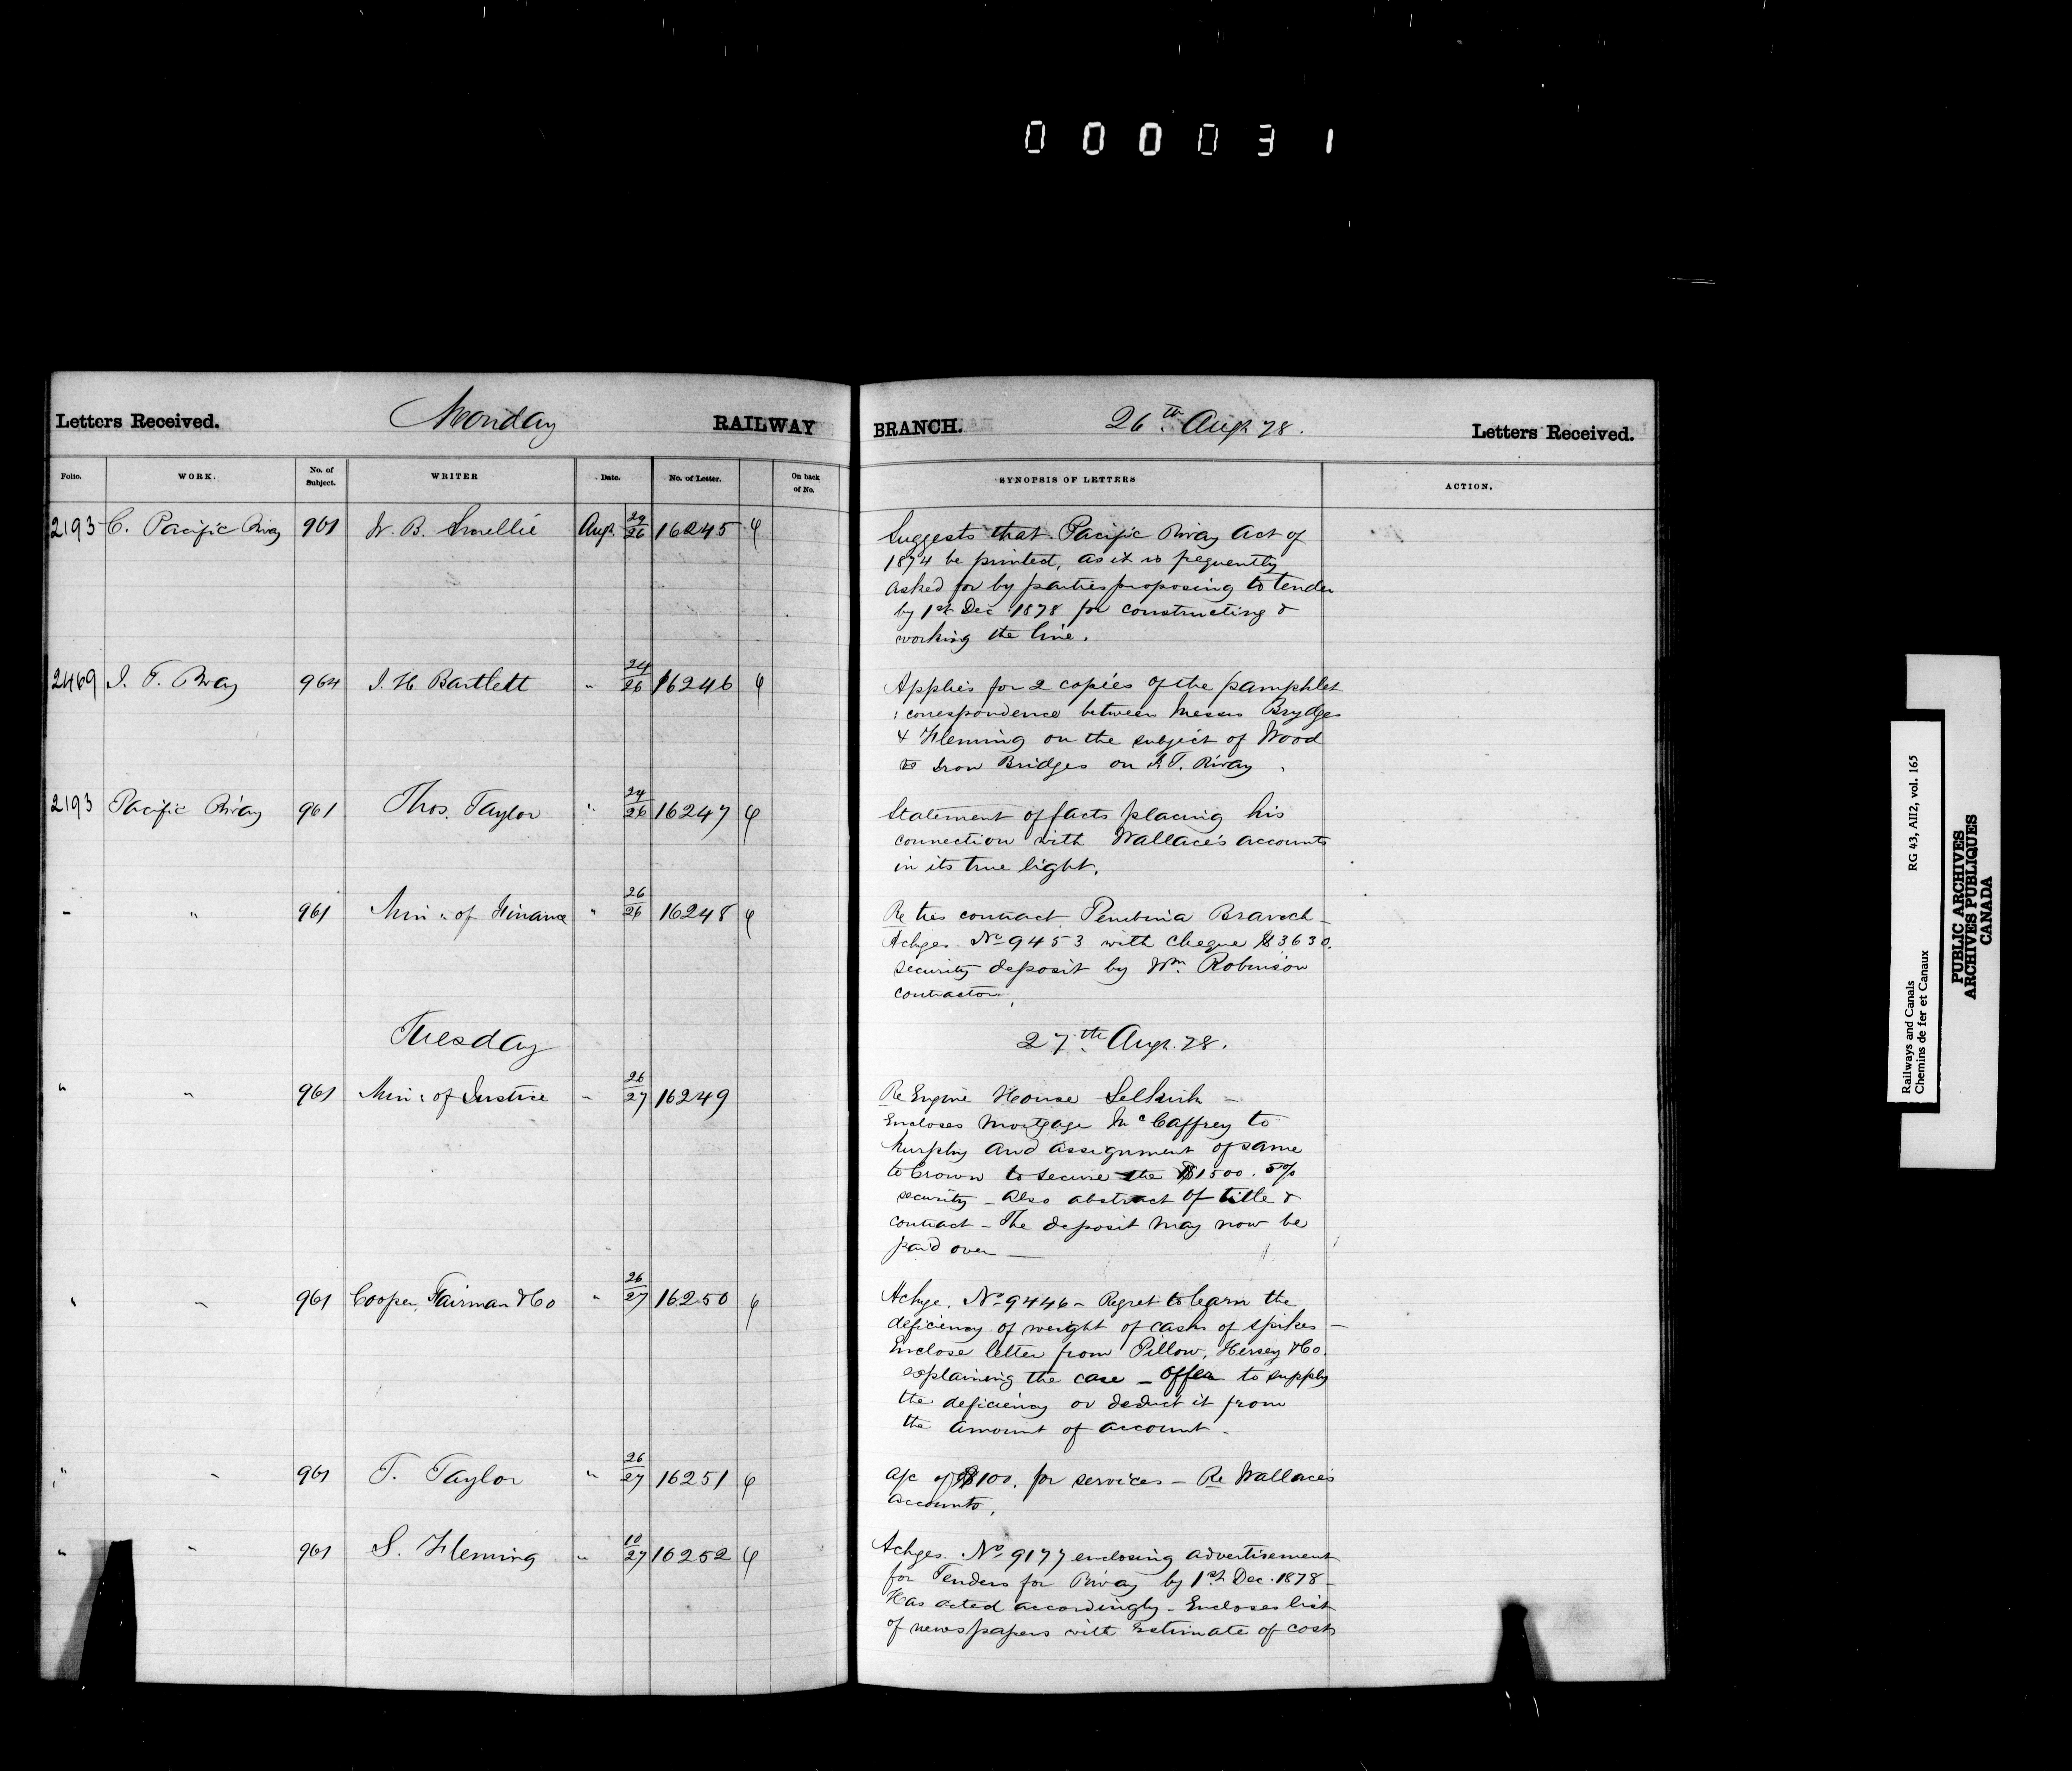 000031
Letters Received. Monday RAILWAY BRANCH. 26th Augt 78. Letters Received.
Folio. WORK. No. of Subject. WRITER Date. No. of Letter. On back of No. SYNOPSIS OF LETTERS ACTION.
2193 C. Pacific Rway 961 W. B. Smellie Augt. 24/26 16245 φ
Suggests that Pacific Rway Act of
1874 be printed, as it is frequently
asked for by parties proposing to tender
by 1st Dec 1878 for constructing &
working the line.
2469 I. T. Rway 964 J. H. Bartlett " 24/26 16246 φ
Applies for 2 copies of the pamphlet
: correspondence between Messrs Brydges
& Fleming on the subject of Wood
to Iron Bridges on I. T. Rway.
2193 Pacific Rway 961 Thos. Taylor " 24/26 16247 φ
Statement of facts placing his
connection with Wallace's accounts
in its true light.
" " 961 Min: of Finance " 26/26 16248 φ
Re ties contract Pembina Branch –
Ackges. No 9453 with cheque $3630.
security deposit by Wm. Robinson
contractor.
Tuesday 27th Augt. 78.
" " 961 Min: of Justice " 26/27 16249
Re Engine House Selkirk –
Encloses Mortgage McCaffrey to
Murphy and assignment of same
to Crown to secure the $1500. 5%
security – Also abstract of title &
contract – The deposit may now be
paid over —
" " 961 Cooper, Fairman & Co " 26/27 16250 φ
Ackge. No 9446 – Regret to learn the
deficiency of weight of casks of spikes –
Enclose letter from Pillow, Hersey & Co.
explaining the case – Offer to supply
the deficiency or deduct it from
the amount of account.
" " 961 T. Taylor " 26/27 16251 φ
a/c of $100. for services – Re Wallace's
accounts.
" " 961 S. Fleming " 10/27 16252 φ
Ackges. No. 9177 enclosing advertisement
for Tenders for Rway by 1st Dec. 1878 –
Has acted accordingly – Encloses list
of newspapers with Estimate of cost
Railways and Canals RG 43, AII2, vol. 165
Chemins de fer et Canaux
PUBLIC ARCHIVES
ARCHIVES PUBLIQUES
CANADA